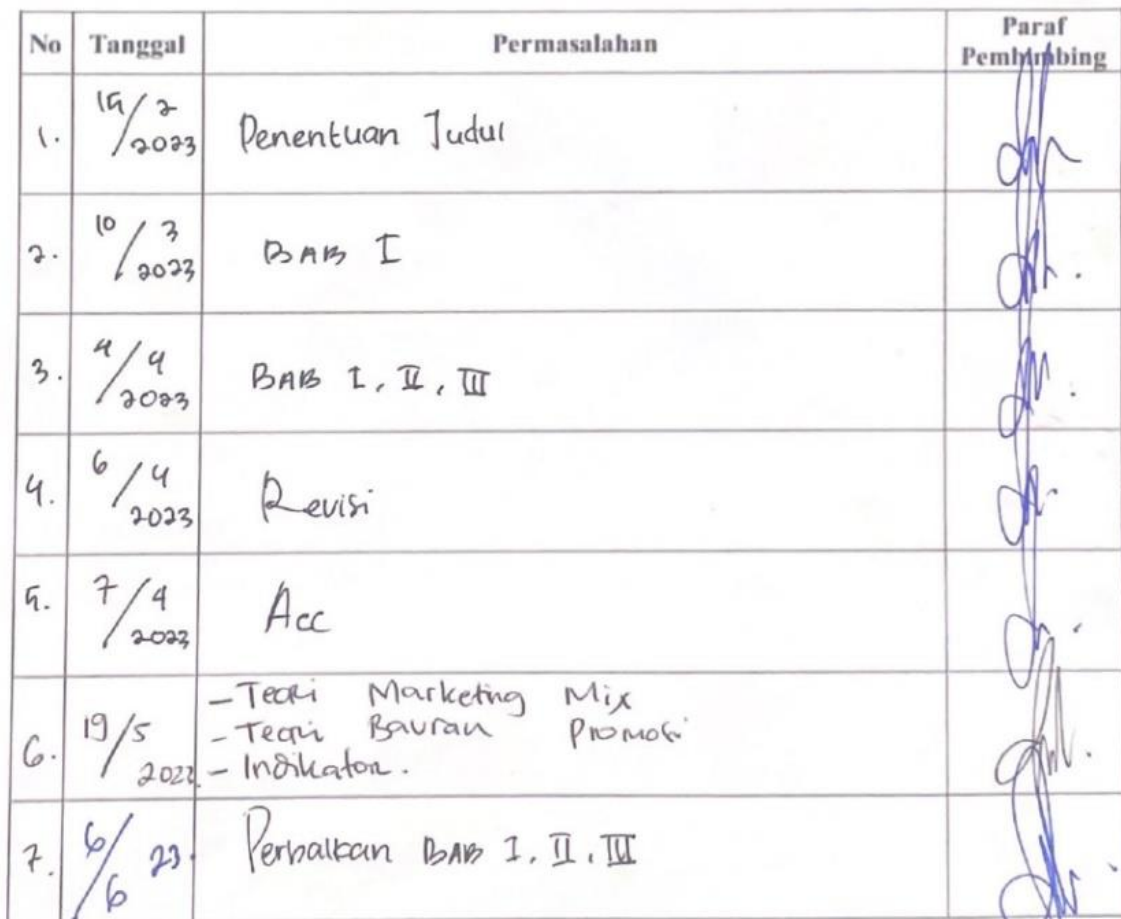 No Tanggal Permasalahan Paraf Pembimbing
1. 15/2 2023 Penentuan Judul
2. 10/3 2023 BAB I
3. 4/4 2023 BAB I, II, III
4. 6/4 2023 Revisi
5. 7/4 2023 Acc
6. 19/5 - Teori Marketing Mix
- Teori Bauran Promosi
- Indikator.
7. 6/6 23 Perbaikan BAB I, II, III